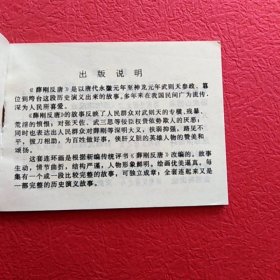 出版说明
《薛刚反唐》是以唐代永徽元年至神龙元年武则天参政、篡
位到垮台这段历史演义出来的故事。多年来在我国民间广为流传，
深为人民所喜爱。
《薛刚反唐》的故事反映了人民群众对武则天的专横、残暴、
荒淫的憎恨；对张天佐、武三思等佞臣权贵依势欺人的厌恶；
同时也表达出人民群众对薛刚等深明大义，扶弱抑强，路见不
平，拔刀相助，为百姓做好事，侠肝义胆的英雄人物的赞美和
颂扬。
这套连环画是根据新编传统评书《薛刚反唐》改编的。故事
生动，情节曲折，结构严谨，人物形象鲜明，绘画优美逼真。每
集有一个或一段比较完整的故事，可独立成章；全套连起来又是
一部完整的历史演义故事。